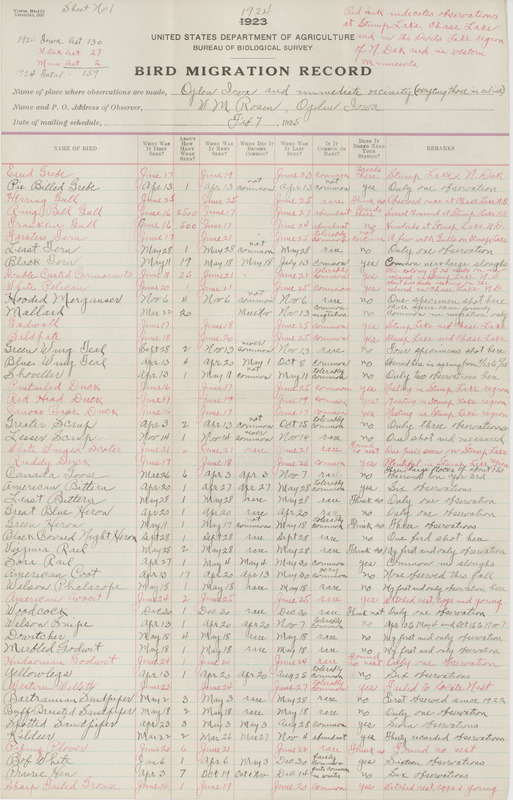 Form Bi-143
Sheet No 1
1924
1923
UNITED STATES DEPARTMENT OF AGRICULTURE
BUREAU OF BIOLOGICAL SURVEY
BIRD MIGRATION RECORD
Red ink indicates observations
at Stump Lake, Chase Lake
and in the Devils Lake region
of N Dak and in western
Minnesota
1924 Iowa Ast 130
N Dak Ast 27
Minn Ast 2
Total - 159
Name of place where observations are made, Ogden Iowa and immediate vicinity (excepting those in red ink)
Name and P. O. Address of Observer, W M Rosen, Ogden Iowa
Date of mailing schedule, Feb 7, 1925
NAME OF BIRD WHEN WAS IT FIRST SEEN? ABOUT HOW MANY WERE SEEN? WHEN WAS IT NEXT SEEN? WHEN DID IT BECOME COMMON? WHEN WAS IT LAST SEEN? IS IT COMMON OR RARE? DOES IT BREED NEAR YOUR STATION? REMARKS
Eared Grebe June 17 June 19 June 23 common Breeds there Stump Lake N Dak
Pie Billed Grebe Apr 13 1 Apr 13 not common Apr 13 common yes Only one observation
Herring Gull June 25 June 25 June 25 rare
Ring Bill Gull June 16 2500 June 17 June 27 abundant
Franklins Gull June 16 500 June 17 June 24 abundant
Forsters Tern June 21 June 25
Least Tern May 28 1 May 28 not common May 28 rare no Only one observation
Black Tern May 11 19 May 18 May 18 July 13 common yes Common near large sloughs
Double Crested Cormorants June 8 25 June 21 June 21 yes
White Pelican June 20 1 June 21 June 25 common
Hooded Merganser Nov 6 4 Nov 6 not common Nov 6 rare no One specimen shot here
Mallard Mar 22 20 Nov 13 no Common in migration only
Gadwall June 17 June 18 June 25 common yes Stump Lake and Chase Lake
Baldpate June 18 June 20 June 25 common yes Stump Lake and Chase Lake
Green Wing Teal Sept 28 2 Nov 13 never common Nov 13 rare no Four specimens shot here
Blue Wing Teal Apr 13 4 Apr 20 May 1 Oct 8 common no
Shoveller Apr 13 1 May 11 not common May 11 tolerably common no Only two observations here
Pintailed Duck June 16 June 17 June 25 common yes Nesting in Stump Lake region
Red Head Duck June 17 June 25 common yes Nesting in Stump Lake region
Canvas Back Duck June 16 June 17 June 25 common yes Nesting in Stump Lake region
Greater Scaup Apr 3 2 Apr 13 not common Oct 15 tolerably common no Only three observations
Lesser Scaup Nov 14 1 Nov 14 never common Nov 14 rare no One shot and measured
White Winged Scoter June 21 June 21 rare
Ruddy Duck June 17 June 18 June 26 common yes
Canada Goose Mar 26 6 Apr 3 Apr 3 Nov 7 rare no
American Bittern Apr 20 1 Apr 27 Apr 27 May 18 tolerably common yes Six observations
Least Bittern May 28 1 May 28 rare May 28 rare Think so Only one observation
Great Blue Heron Apr 20 Apr 20 rare Apr 20 rare no Only one observation
Green Heron May 11 1 May 17 not common May 18 tolerably common Think so Three observations
Black Crowned Night Heron Sept 28 1 Sept 28 rare Sept 28 rare no One bird shot here
Virginia Rail May 28 2 May 28 rare May 28 rare Think so My first and only observation
Sora Rail Apr 27 1 May 4 May 4 May 30 common yes Common in sloughs
American Coot Apr 13 17 Apr 20 Apr 13 May 30 very common no None observed this fall
Wilson Phalarope May 18 1 May 18 rare May 18 rare no My first and only observation here
American Avocet June 24 2 June 25 June 25 rare yes
Woodcock Dec 20 1 Dec 20 rare Dec 20 rare Think not Only one observation
Wilson Snipe Apr 13 Apr 20 Apr 20 Nov 7 common no
Dowitcher May 18 4 May 18 rare May 18 rare no My first and only observation
Marbled Godwit May 18 1 May 18 rare May 18 rare no My first and only observation
Hudsonian Godwit June 24 June 24 June 24 rare Only one observation
Yellowlegs Apr 13 1 Apr 20 Apr 20 Aug 25 tolerably common no Six observations
Western Willet June 23 June 24 June 27 tolerably common yes Failed to locate Nest
Bartramian Sandpiper May 2 3 May 3 rare May 28 rare no First observed since 1922
Buff Breasted Sandpiper May 18 2 May 18 rare May 18 rare no Only one observation
Spotted Sandpiper Apr 23 3 May 3 May 3 Aug 28 common yes
Killdeer Mar 22 2 Mar 26 Mar 27 Nov 4 abundant yes Thirty recorded observations
Piping Plover June 20 6 June 21 June 22 rare Think so Found no nest
Bob White Jan 6 1 Apr 6 May 3 Dec 30 fairly common yes Sixteen observations
Prairie Hen Apr 3 7 Oct 19 Dec 14 no Six observations
Sharp Tailed Grouse June 19 1 June 21 June 24 rare yes